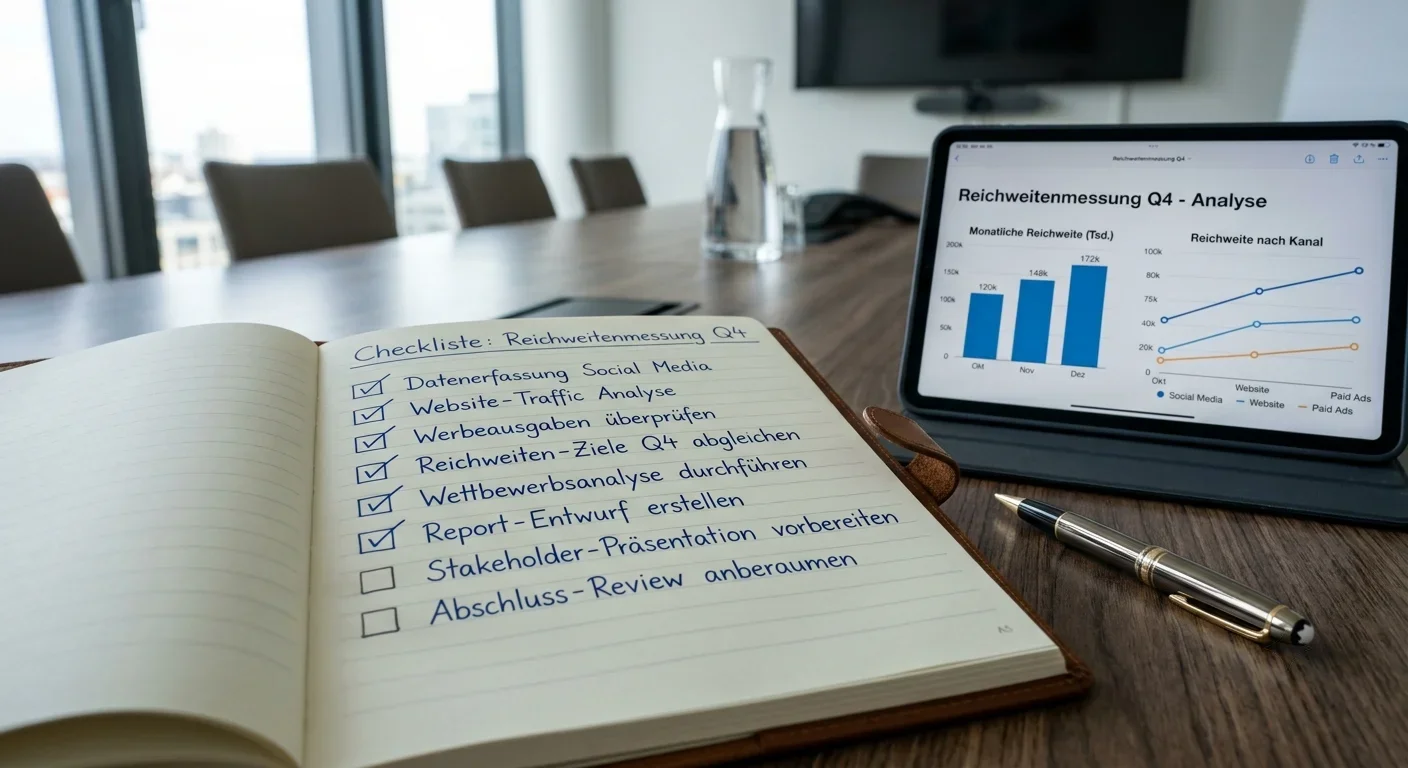 Checkliste: Reichweitenmessung Q4
Datenerfassung Social Media
Website-Traffic Analyse
Werbeausgaben überprüfen
Reichweiten-Ziele Q4 abgleichen
Wettbewerbsanalyse durchführen
Report-Entwurf erstellen
Stakeholder-Präsentation vorbereiten
Abschluss-Review anberaumen
Reichweitenmessung Q4
Reichweitenmessung Q4 - Analyse
Monatliche Reichweite (Tsd.)
200k
150k
100k
50k
0
120k
148k
172k
Okt
Nov
Dez
Reichweite nach Kanal
100k
80k
75k
40k
20k
0
Okt
Website
Paid Ads
Social Media
Website
Paid Ads